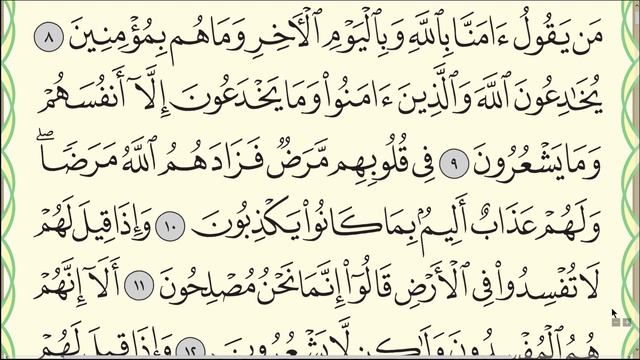 مَن يَقُولُ ءَامَنَّا بِٱللَّهِ وَبِٱلْيَوْمِ ٱلْأَخِرِ وَمَا هُم بِمُؤْمِنِينَ ٨
يُخَٰدِعُونَ ٱللَّهَ وَٱلَّذِينَ ءَامَنُوا۟ وَمَا يَخْدَعُونَ إِلَّآ أَنفُسَهُمْ
وَمَا يَشْعُرُونَ ٩ فِى قُلُوبِهِم مَّرَضٌ فَزَادَهُمُ ٱللَّهُ مَرَضًاۖ
وَلَهُمْ عَذَابٌ أَلِيمٌۢ بِمَا كَانُوا۟ يَكْذِبُونَ ١٠ وَإِذَا قِيلَ لَهُمْ
لَا تُفْسِدُوا۟ فِى ٱلْأَرْضِ قَالُوٓا۟ إِنَّمَا نَحْنُ مُصْلِحُونَ ١١ أَلَآ إِنَّهُمْ
هُمُ ٱلْمُفْسِدُونَ وَلَٰكِن لَّا يَشْعُرُونَ ١٢ وَإِذَا قِيلَ لَهُمْ